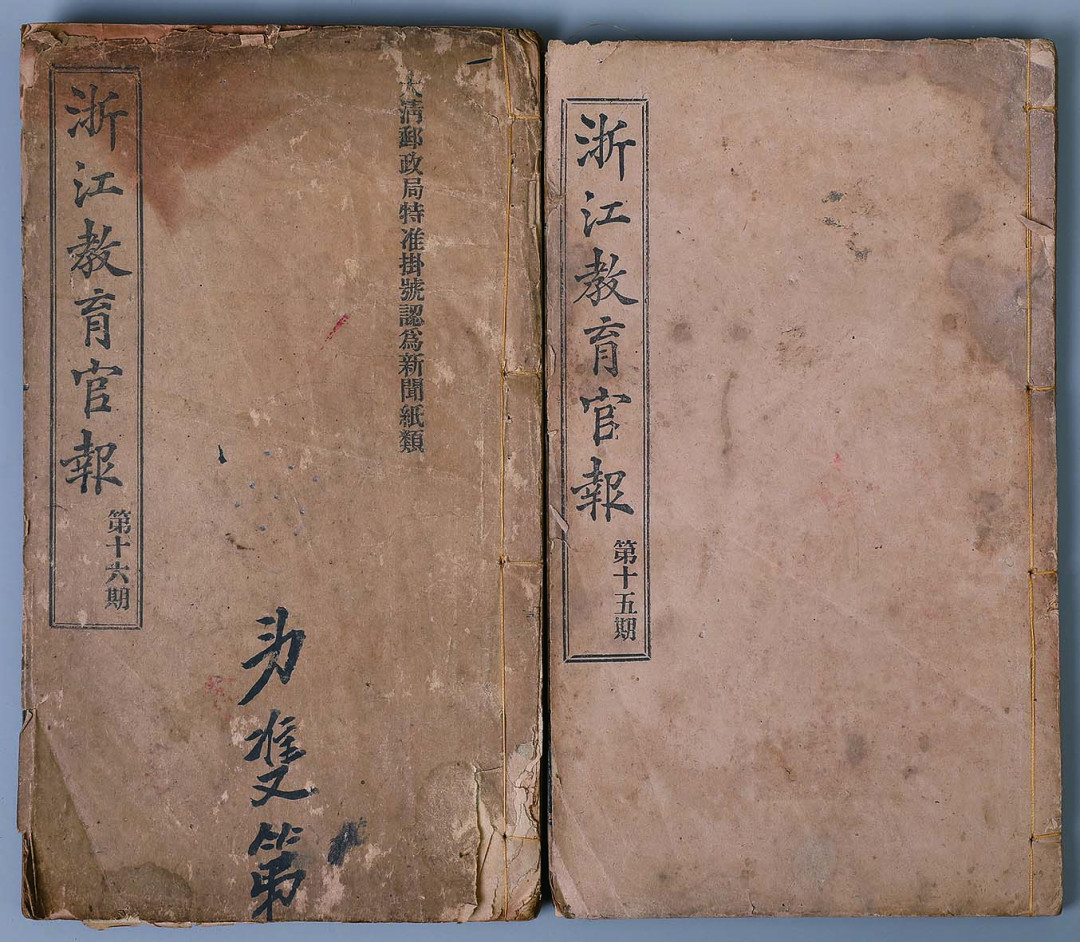 浙江教育官報
第十五期
大清郵政局特准掛號認爲新聞紙類
第
浙江教育官報
第十六期